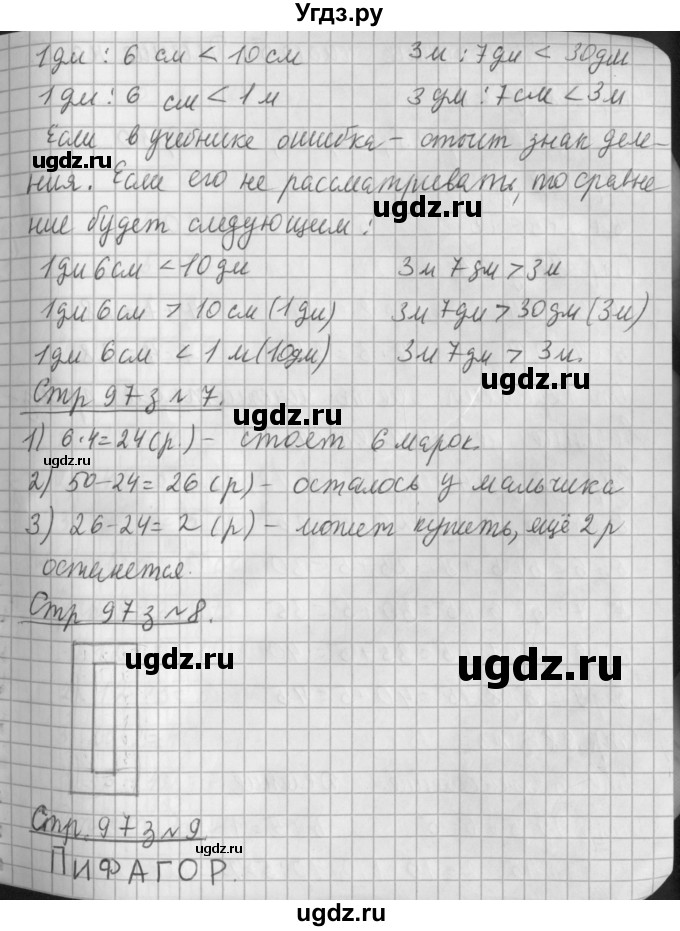 Угдз.ру
1дм : 6 см < 10 см 3м : 7дм < 30дм
1дм : 6 см < 1 м 3 дм : 7см < 3м
Если в учебнике ошибка – стоит знак деле-
ugdz.ru
ния. Если его не рассматривать, то сравне-
ugdz.ru
ние будет следующим:
1дм 6см < 10 дм 3м 7дм > 3м
1дм 6см > 10 см (1дм) 3м 7дм > 30дм (3м)
1дм 6см < 1 м (10дм) 3м 7дм > 3м.
ugdz.ru
Стр 97 з № 7.
ugdz.ru
1) 6·4=24(р.) – стоят 6 марок.
ugdz.ru
2) 50-24= 26 (р) – осталось у мальчика
3) 26-24= 2 (р) – может купить, ещё 2 р
останется.
ugdz.ru
Стр 97 з № 8.
ugdz.ru
ugdz.ru
Стр. 97 з № 9
ugdz.ru
ПИФАГОР.
ugdz.ru